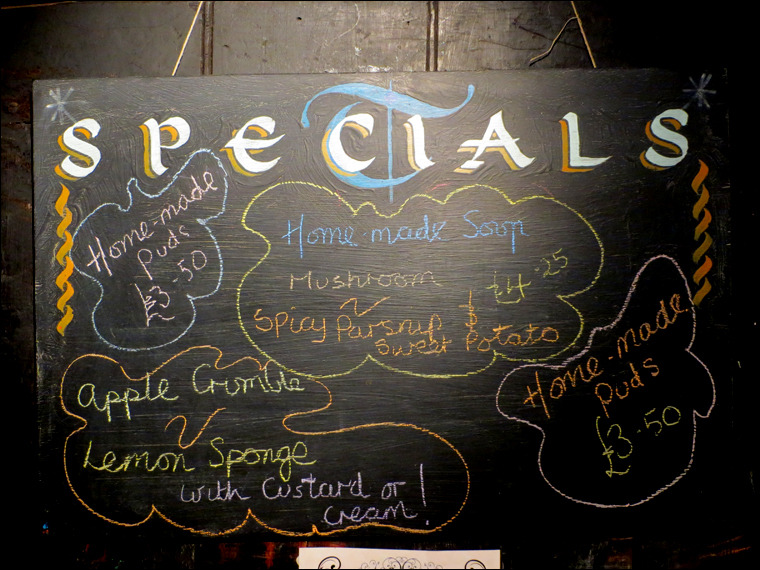 SPECIALS
Home-made
puds
£3.50
Home-made Soup
Mushroom
£4.25
~
Spicy Parsnip &
Sweet Potato
Apple Crumble
~
Lemon Sponge
with Custard or
Cream!
Home-made
puds
£3.50